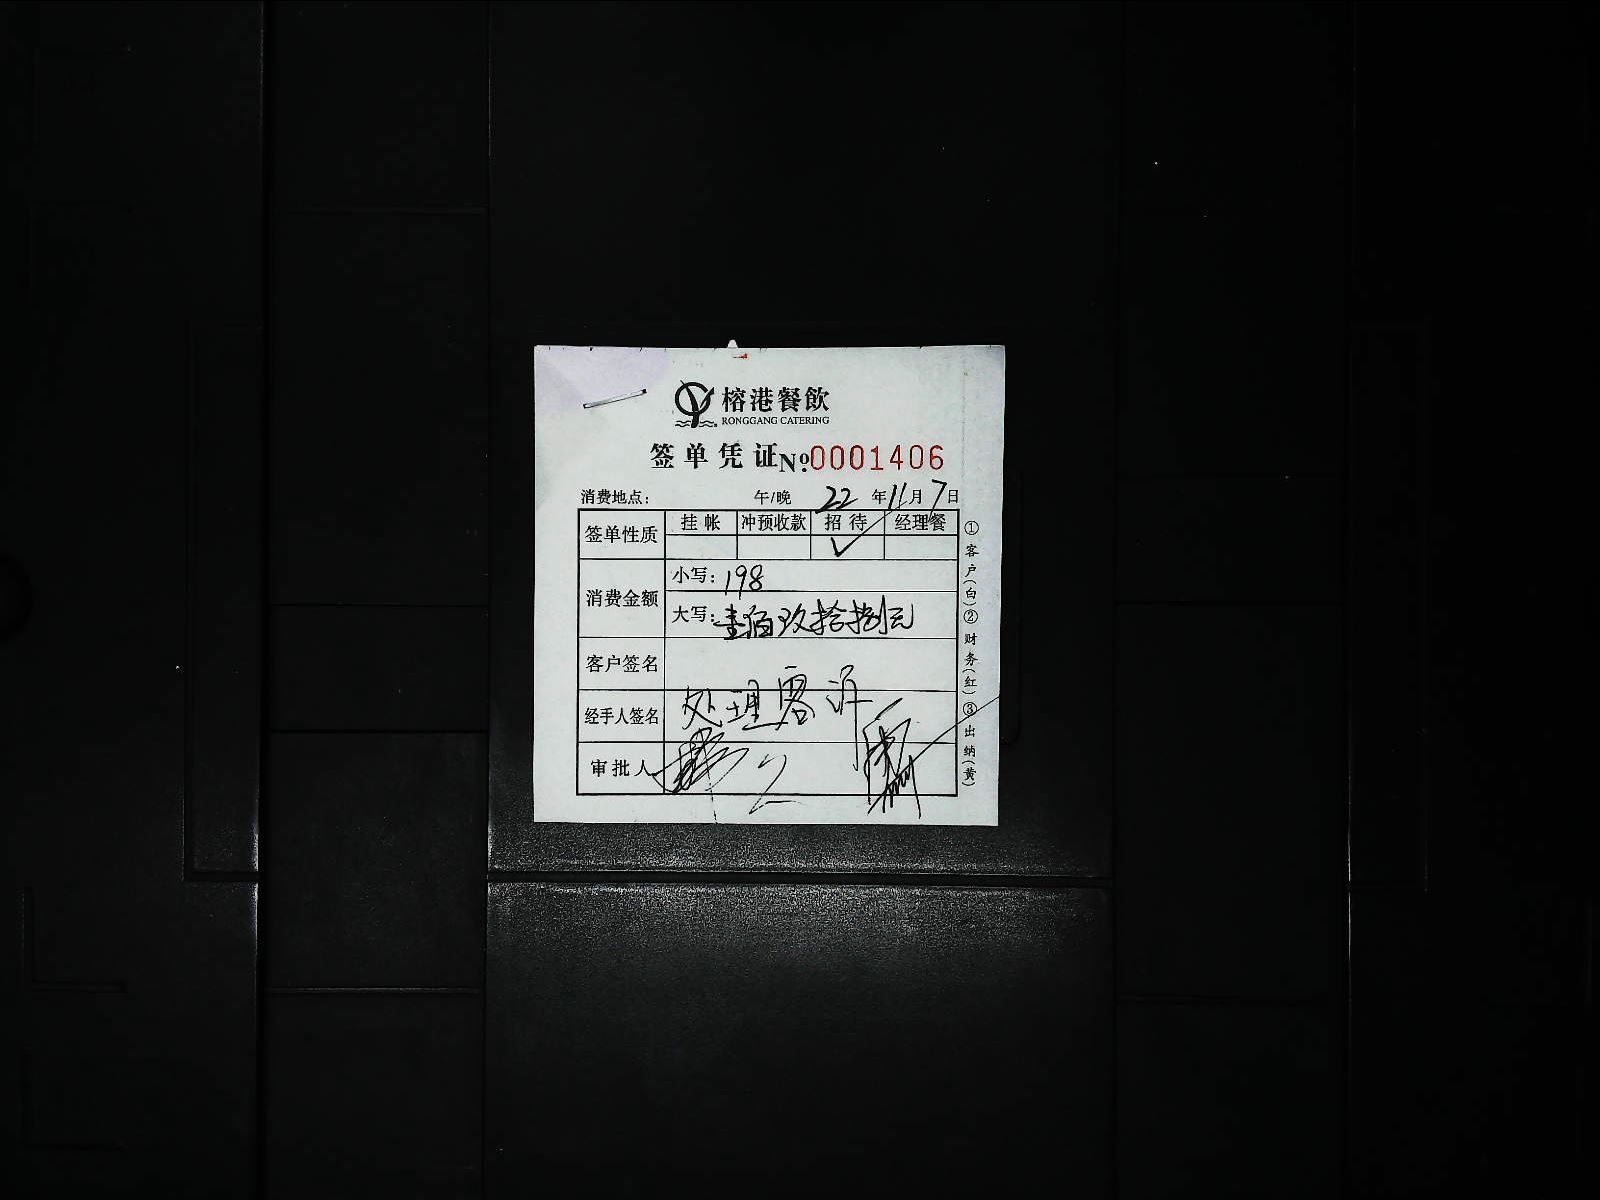 榕港餐飲
RONGGANG CATERING
签单凭证 Nº 0001406
消费地点： 午/晚 22年11月7日
签单性质 挂帐 冲预收款 招待 经理餐
✓
消费金额 小写：198
大写：壹佰玖拾捌元
客户签名
经手人签名 处理客诉
审批人
①客户(白)②财务(红)③出纳(黄)